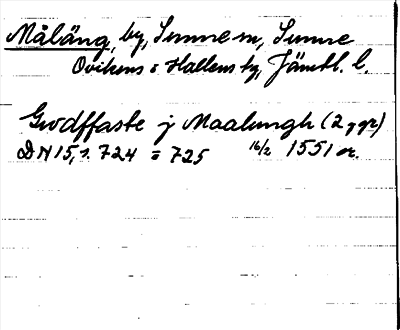 Målång, by, Sunne sn, Sunne
Ovikens o Hallens tg, Jämtl. l.
Gvdffaste j Maalungh (2 ggr)
DN 15, s. 724 = 725 16/2 1551 or.